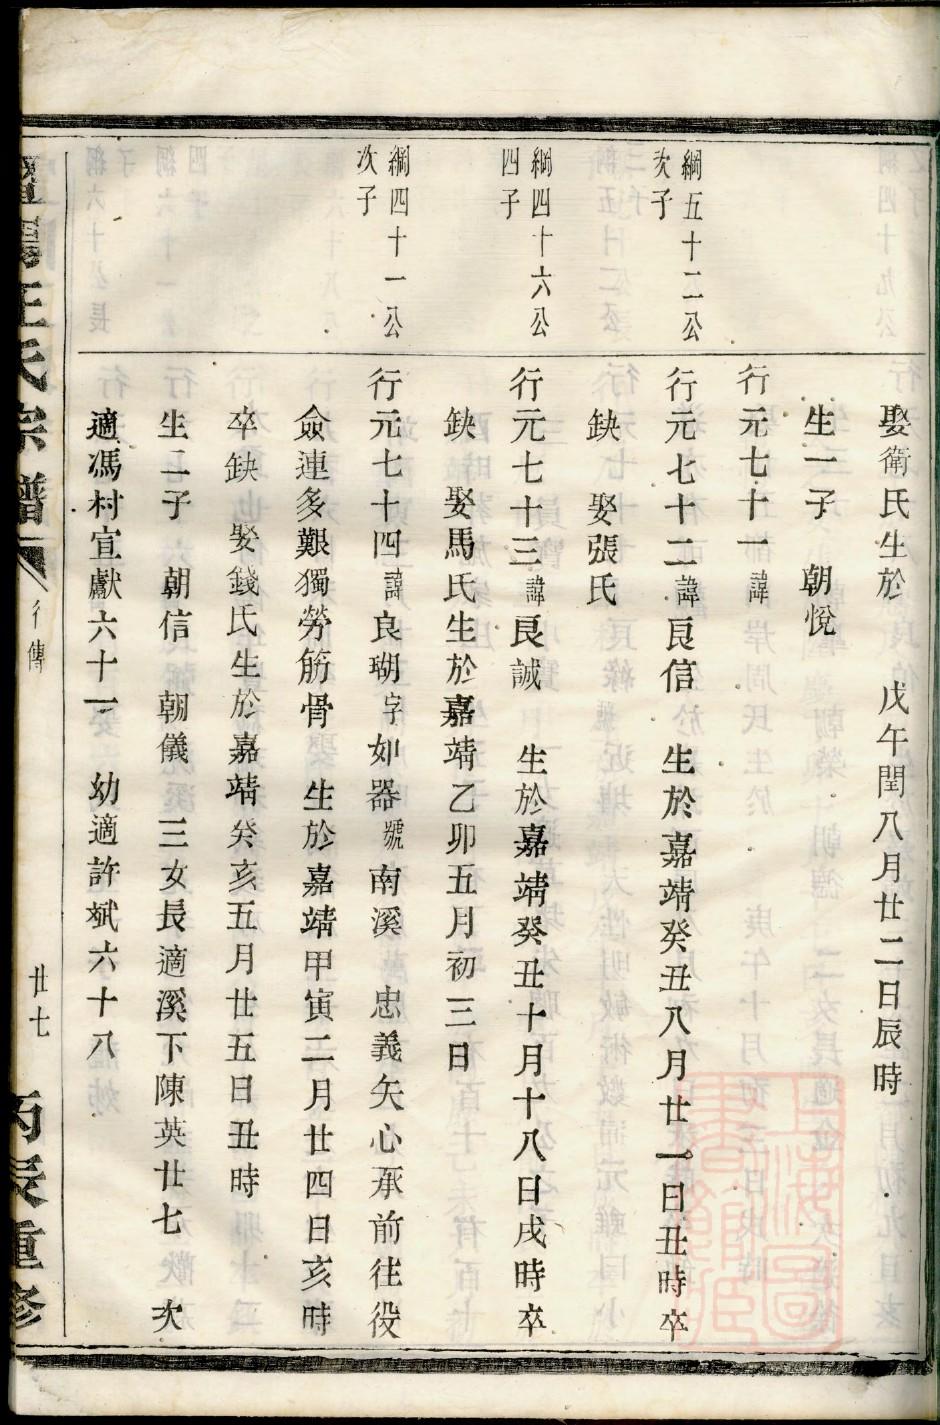 娶衛氏生於 戊午閏八月廿二日辰時
生一子 朝悅
行元七十一諱
綱五十二公
次子
行元七十二諱良信 生於嘉靖癸丑八月廿一日丑時卒
缺 娶張氏
綱四十六公
四子
行元七十三諱良誠 生於嘉靖癸丑十月十八日戌時卒
缺 娶馬氏生於嘉靖乙卯五月初三日
綱四十一公
次子
行元七十四諱良瑚字如器號南溪 忠義矢心承前往役
僉連多艱獨勞筋骨 生於嘉靖甲寅二月廿四日亥時
卒缺 娶錢氏生於嘉靖癸亥五月廿五日丑時
生二子 朝信 朝儀 三女長適溪下陳英廿七 次
適馮村宣獻六十一 幼適許斌六十八
王氏宗譜 行傳 廿七 丙辰重修